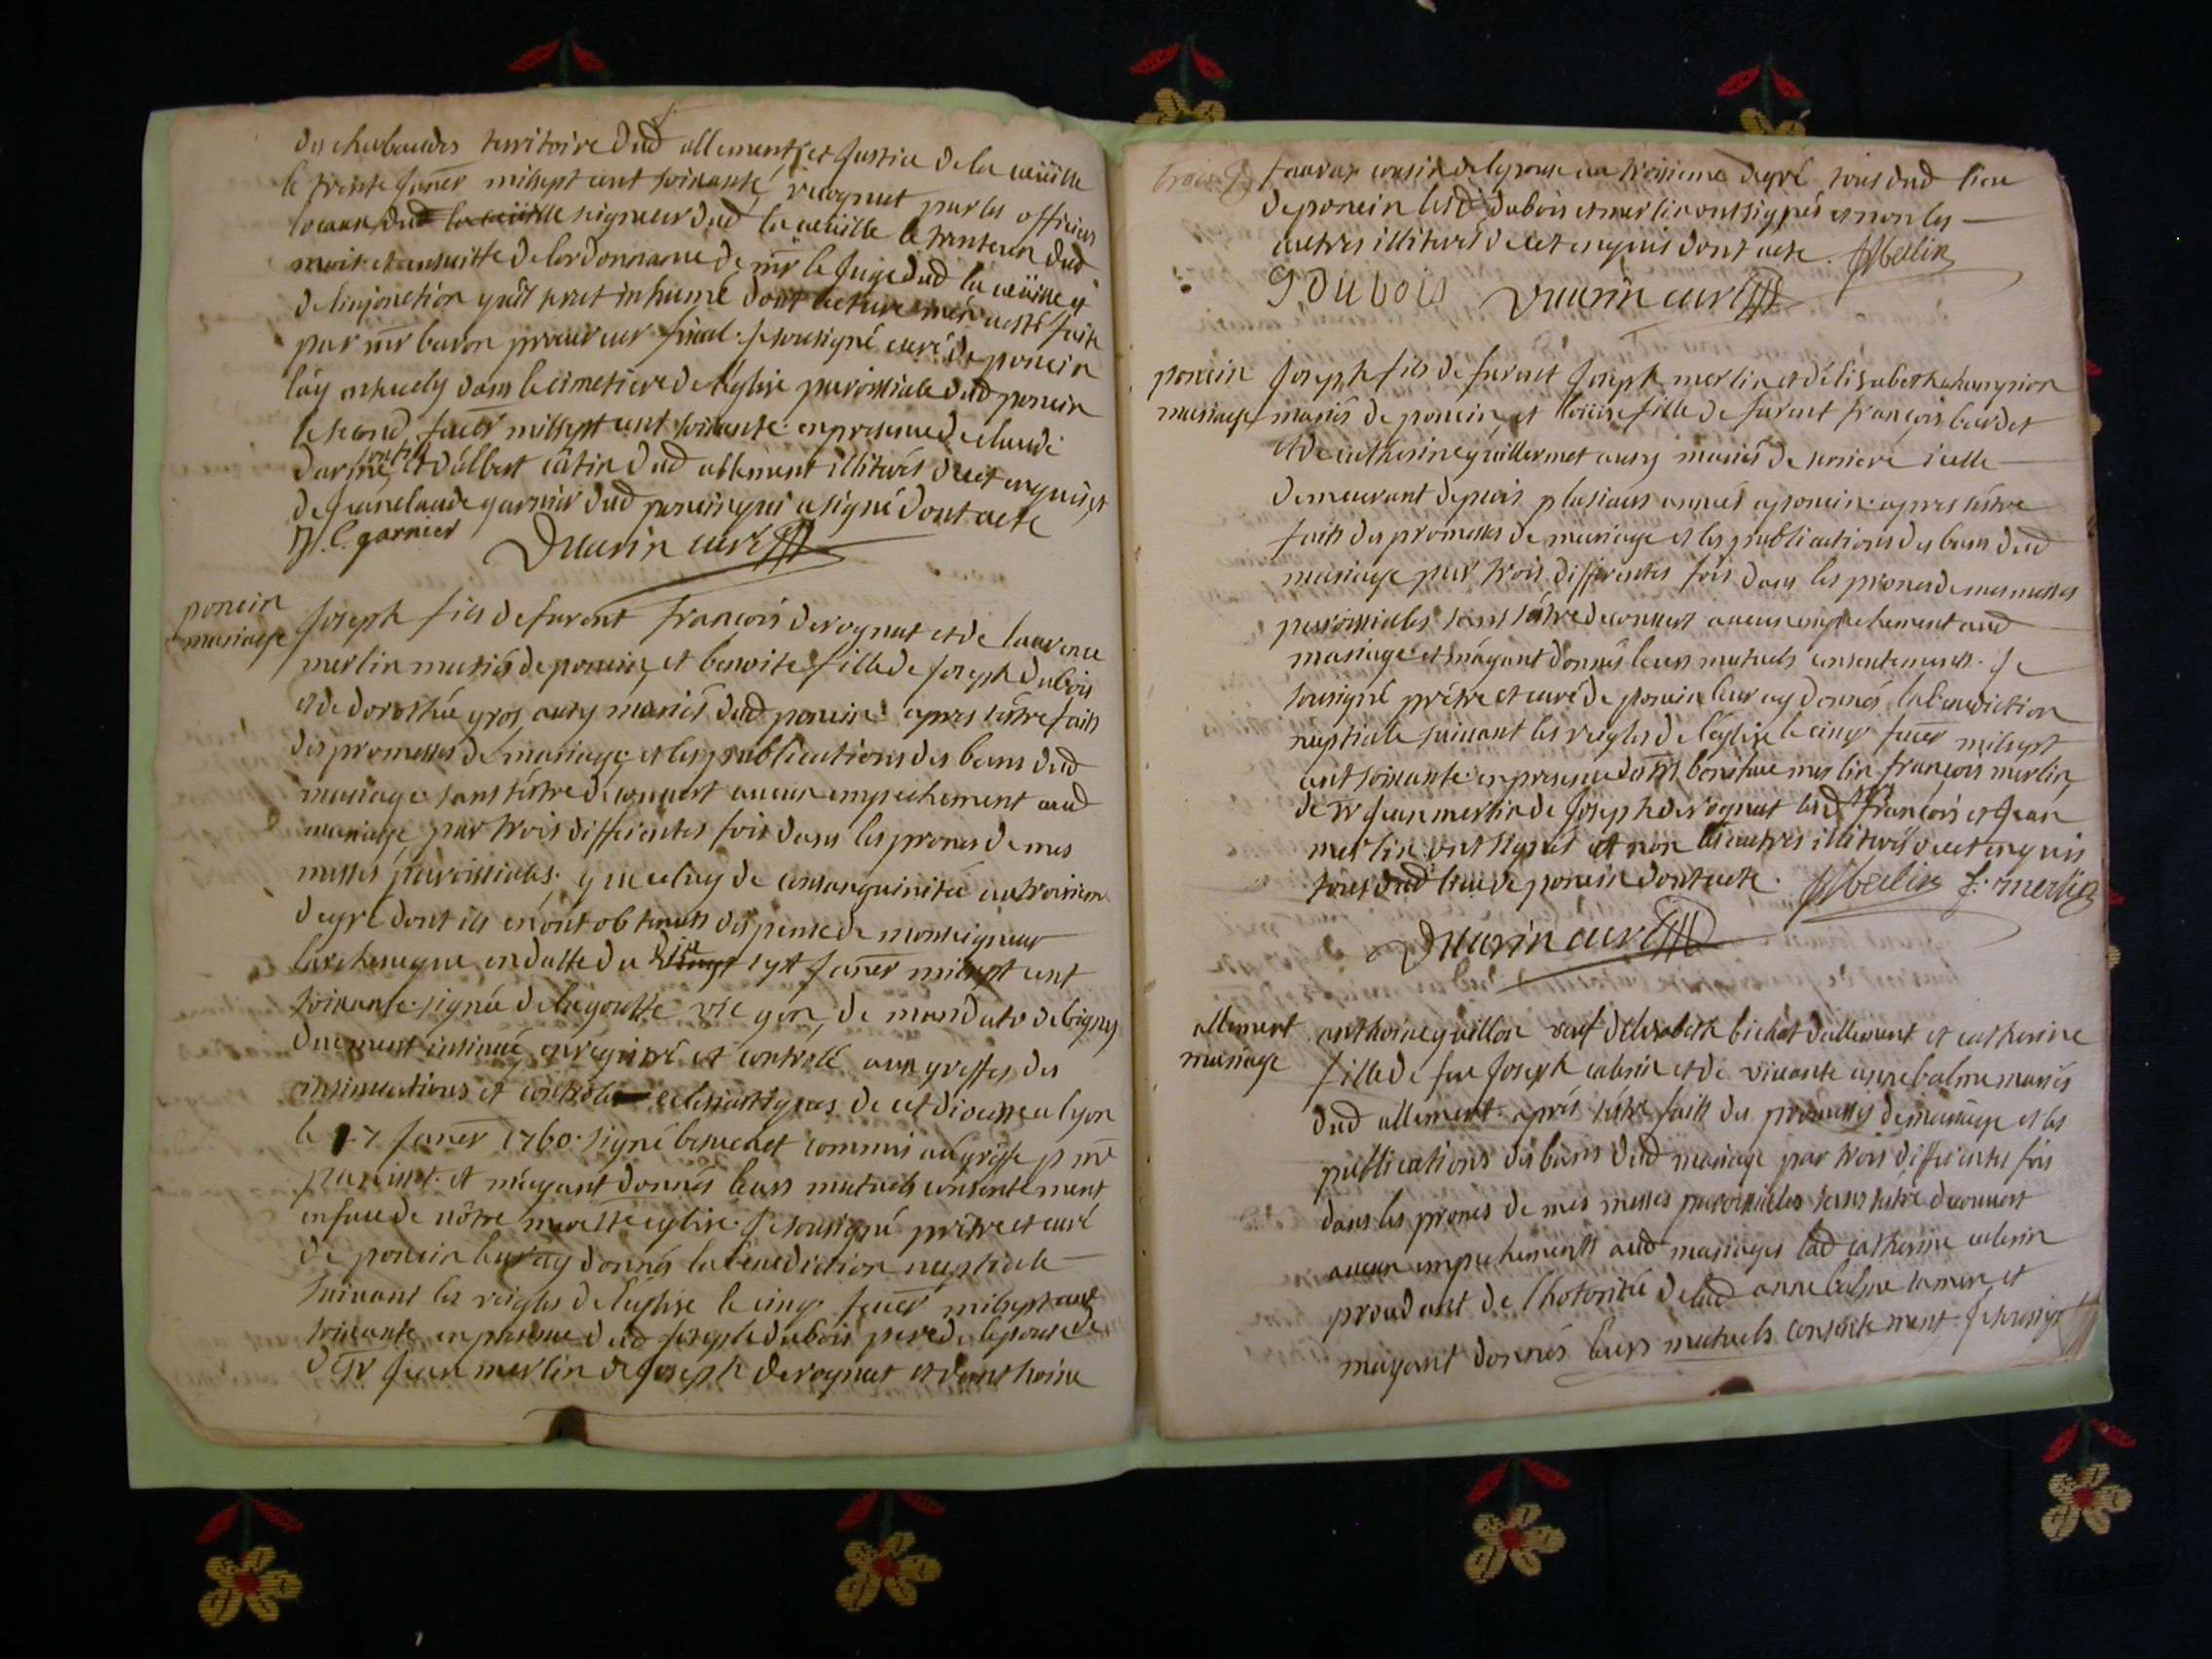 des chabaudes territoire dud allement, et Justice de la cueille
le trente Janer mil sept cent soixante, recognut par les officiers
locaux dud la cueille seigneur dud la cueille le trente un dud
mois et ensuitte de lordonnance de mr le Juge dud la cueille et
de linjonction quil seroit inhumé dont lecture men a esté faite
par mr baron procureur fiscal. Je sousigné curé de poncin
lay ensevely dans le cimetiere de leglise paroissiale dud poncin
le second feuer mil sept cent soixante en presence de claude
et dalbert catin dud allement illiterés de ce enquis, et
de Jean claude garnier dud poncin qui a signé dont acte
J. C. garnier Duurin curé
poncin
mariage
Joseph fils de furent francois derognat et de laurence
merlin mariés de poncin, et benoite fille de Joseph dubois
et de dorothée gros, aussy mariés dud poncin. apres sêtre faits
des promesses de mariage, et les publications des bans dud
mariage sans sêtre decouvert aucun empechement aud
mariage par trois differentes fois dans les prones de mes
messes paroissiales. que celuy de consanguinitée au troisieme
degré dont ils en ont obtenus dispense de monseigneur
larcheveque en datte du sept Janer mil sept cent
soixante signée delagoutte vic gen, de mandato debigny
duement insinué, enregistré et controllé aux greffes des
insinuations et controle eclesiastiques de cet diocesse a lyon
le 17 Janer 1760. signé commis au greffe
et mayant donnés leurs mutuels consentement
en face de nôtre mere ste eglise. Je sousigné prêtre et curé
de poncin leur ay donnés la benediction nuptiale
suivant les reigles de leglise le cinq feuer mil sept cent
soixante en presence dud Joseph dubois pere de lepouse de
de Sr Jean merlin de Joseph derognat et danthoine
trois
favar cousin de lepouse au troisieme degré tous dud lieu
de poncin lesd dubois et merlin ont signés et non les
autres illiterés de ce enquis dont acte. JMerlin
J dubois Duurin curé
poncin
mariage
Joseph fils de furent Joseph merlin et délisabeth champion
mariés de poncin, et loüise fille de furent françois bardet
et de catherine guillermet aussy mariés de icelle
demeurant depuis plusieurs années a poncin. apres sêtre
faits des promesses de mariage et les publications des bans dud
mariage par trois differentes fois dans les prones de mes messes
paroissiales sans sêtre decouvert aucun empechement aud
mariage et mayant donnés leurs mutuels consentements. Je
sousigné prêtre et curé de poncin leur ay donnés la benediction
nuptiale suivant les reigles de leglise le cinq feuer mil sept
cent soixante. en presence de boniface merlin, françois merlin,
de Sr Jean merlin de Joseph derognat lesd françois et Jean
merlin ont signés et non les autres illiterés de ce enquis
tous dud lieu de poncin dont acte. JMerlin f. merlin
Duurin curé
allement
mariage
anthoine guillon veuf délisabeth bichat dallement et catherine
fille de feu Joseph caberin et de vivante anne balme mariés
dud allement. aprés sêtre faits des promesses de mariage et les
publications des bans dud mariage par trois differentes fois
dans les prones de mes messes paroissiales sans sêtre decouvert
aucun empechements aud mariages lad catherine caberin
procedant de lhotoritée de lad anne balme sa mere, et
mayant donnés leurs mutuels consentement. Je sousigé